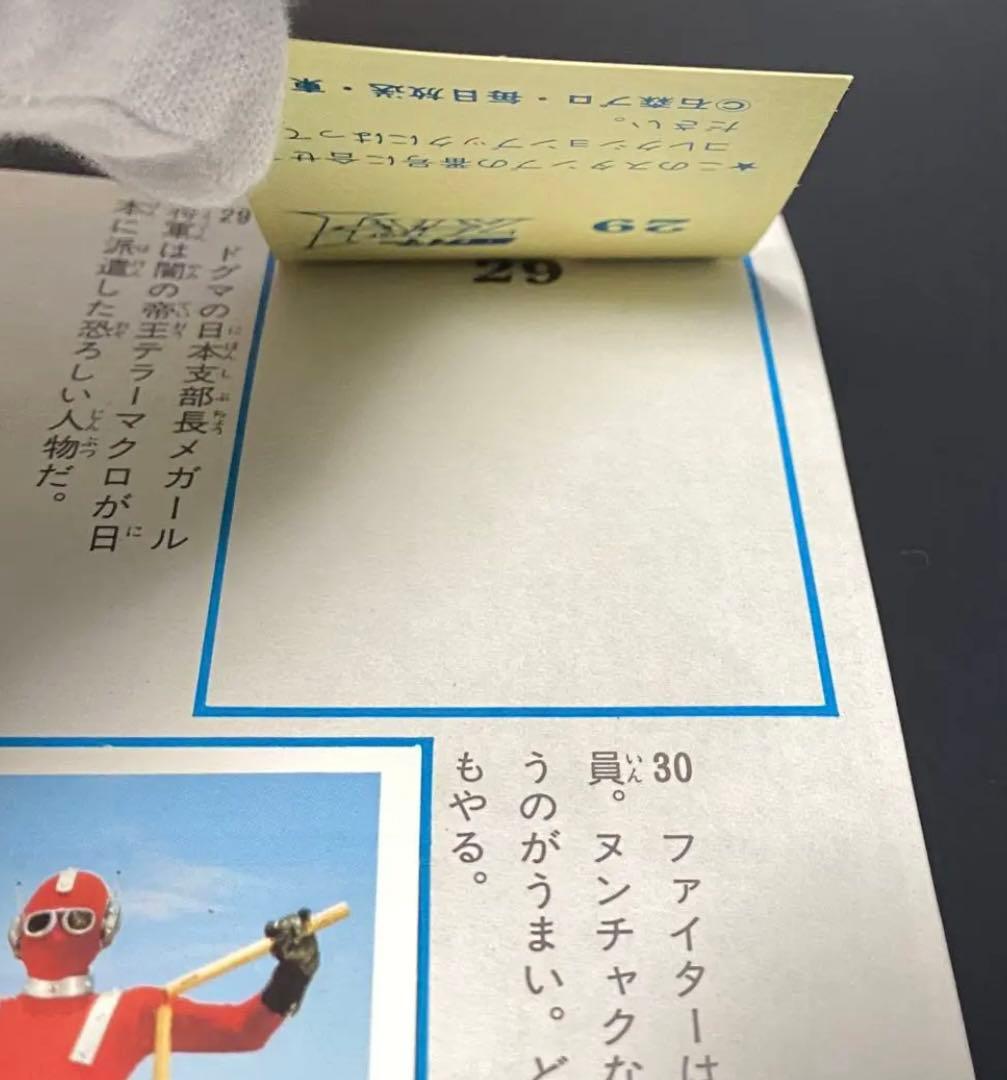 ©石森プロ・毎日放送・東
★このスタンプの番号に合せ
コレクションブックにはって
ださい。
29
29
29 ドグマの日本支部長メガール
将軍は闇の帝王テラーマクロが日
本に派遣した恐ろしい人物だ。
30 ファイターは
員。ヌンチャクな
うのがうまい。ど
もやる。